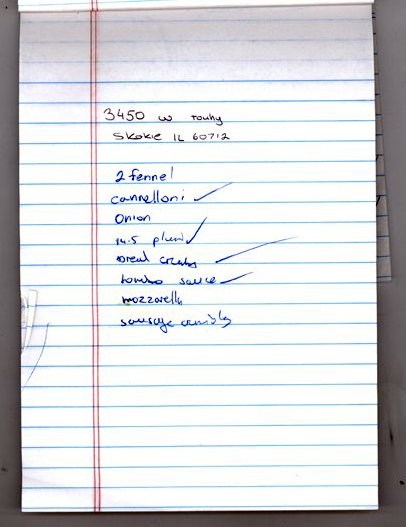 3450 W Touhy
Skokie IL 60712
2 fennel
cannelloni
Onion
14.5 plum
bread crumbs
tomato sauce
mozzarella
sausage crumbly